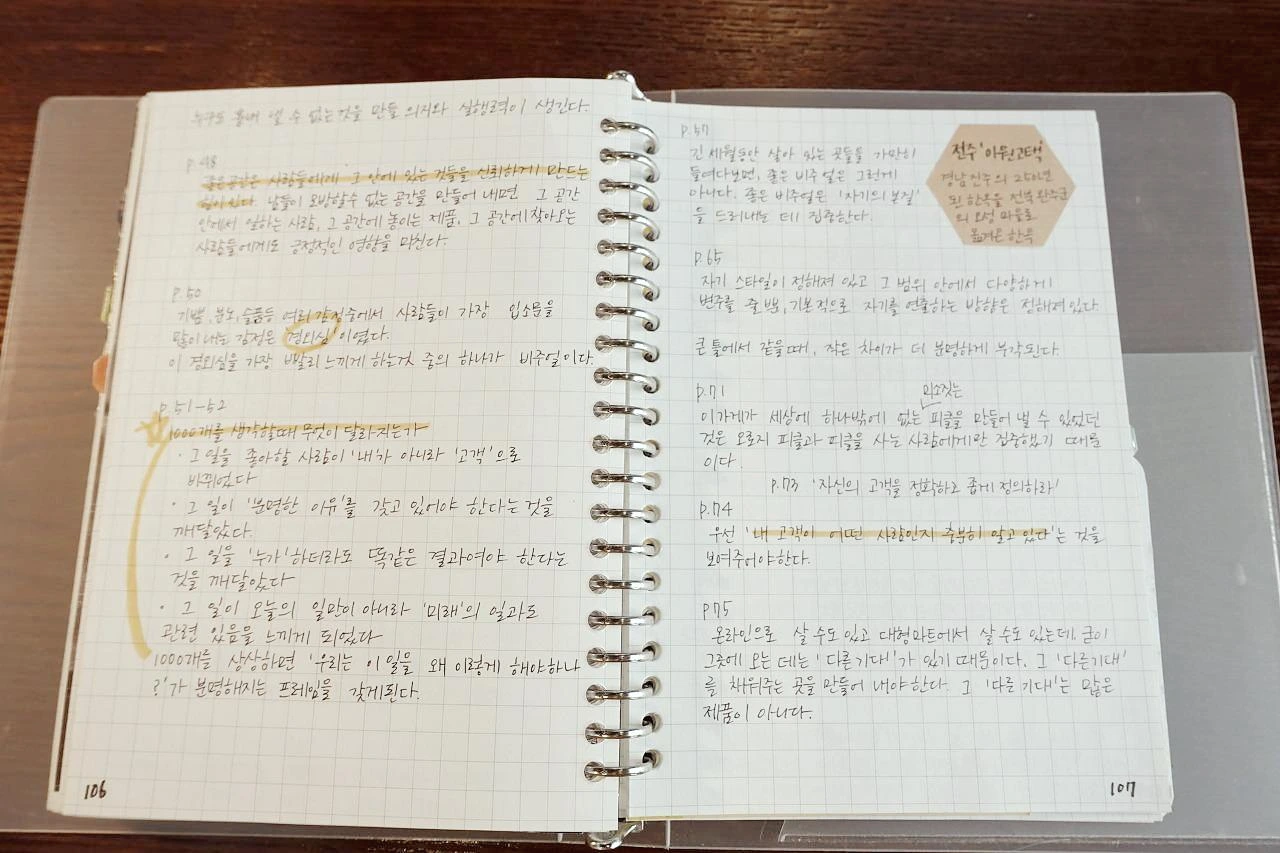 누구도 흉내 낼 수 없는 것을 만들 의지와 실행력이 생긴다.
p.48
좋은공간은 사람들에게 그 안에 있는 것들을 신뢰하게 만드는
힘이 있다. 남들이 모방할수 없는 공간을 만들어 내면 그 공간
안에서 일하는 사람, 그 공간에 놓이는 제품, 그 공간에 찾아오는
사람들에게도 긍정적인 영향을 미친다.
p.50
기쁨, 분노, 슬픔등 여러 감정중에서 사람들이 가장 입소문을
많이 내는 감정은 '경외심'이였다.
이 경외심을 가장 빨리 느끼게 하는것 중의 하나가 비주얼이다.
p.51-52
1000개를 생각할때 무엇이 달라지는가
· 그 일을 좋아할 사람이 '내'가 아니라 '고객'으로
바뀌었다
· 그 일이 '분명한 이유'를 갖고 있어야 한다는 것을
깨달았다.
· 그 일을 '누가' 하더라도 똑같은 결과여야 한다는
것을 깨달았다
· 그 일이 오늘의 일만이 아니라 '미래'의 일과도
관련 있음을 느끼게 되었다
1000개를 상상하면 '우리는 이 일을 왜 이렇게 해야하나
?'가 분명해지는 프레임을 갖게된다.
106
p.57
긴 세월동안 살아 있는 곳들을 가만히
들여다보면, 좋은 비주얼은 그런게
아니다. 좋은 비주얼은 '자기의 본질'
을 드러내는 데 집중한다.
전주 '아원고택'
경남 진주의 250년
된 한옥을 전북 완주군
의 오성 마을로
옮겨온 한옥
p.65
자기 스타일이 정해져 있고 그 범위 안에서 다양하게
변주를 줄 뿐, 기본적으로 자기를 연출하는 방향은 정해져있다.
큰 틀에서 같을때, 작은 차이가 더 분명하게 부각된다.
p.71
미소짓는
이가게가 세상에 하나밖에 없는 피클을 만들어 낼 수 있었던
것은 오로지 피클과 피클을 사는 사람에게만 집중했기 때문
이다.
p.73 '자신의 고객을 정확하고 좁게 정의하라'
p.74
우선 '내 고객이 어떤 사람인지 충분히 알고 있다'는 것을
보여주어야한다.
p75
온라인으로 살 수도 있고 대형마트에서 살 수도 있는데, 굳이
그곳에 오는 데는 '다른기대'가 있기 때문이다. 그 '다른기대'
를 채워주는 곳을 만들어 내야한다. 그 '다른 기대'는 많은
제품이 아니다.
107